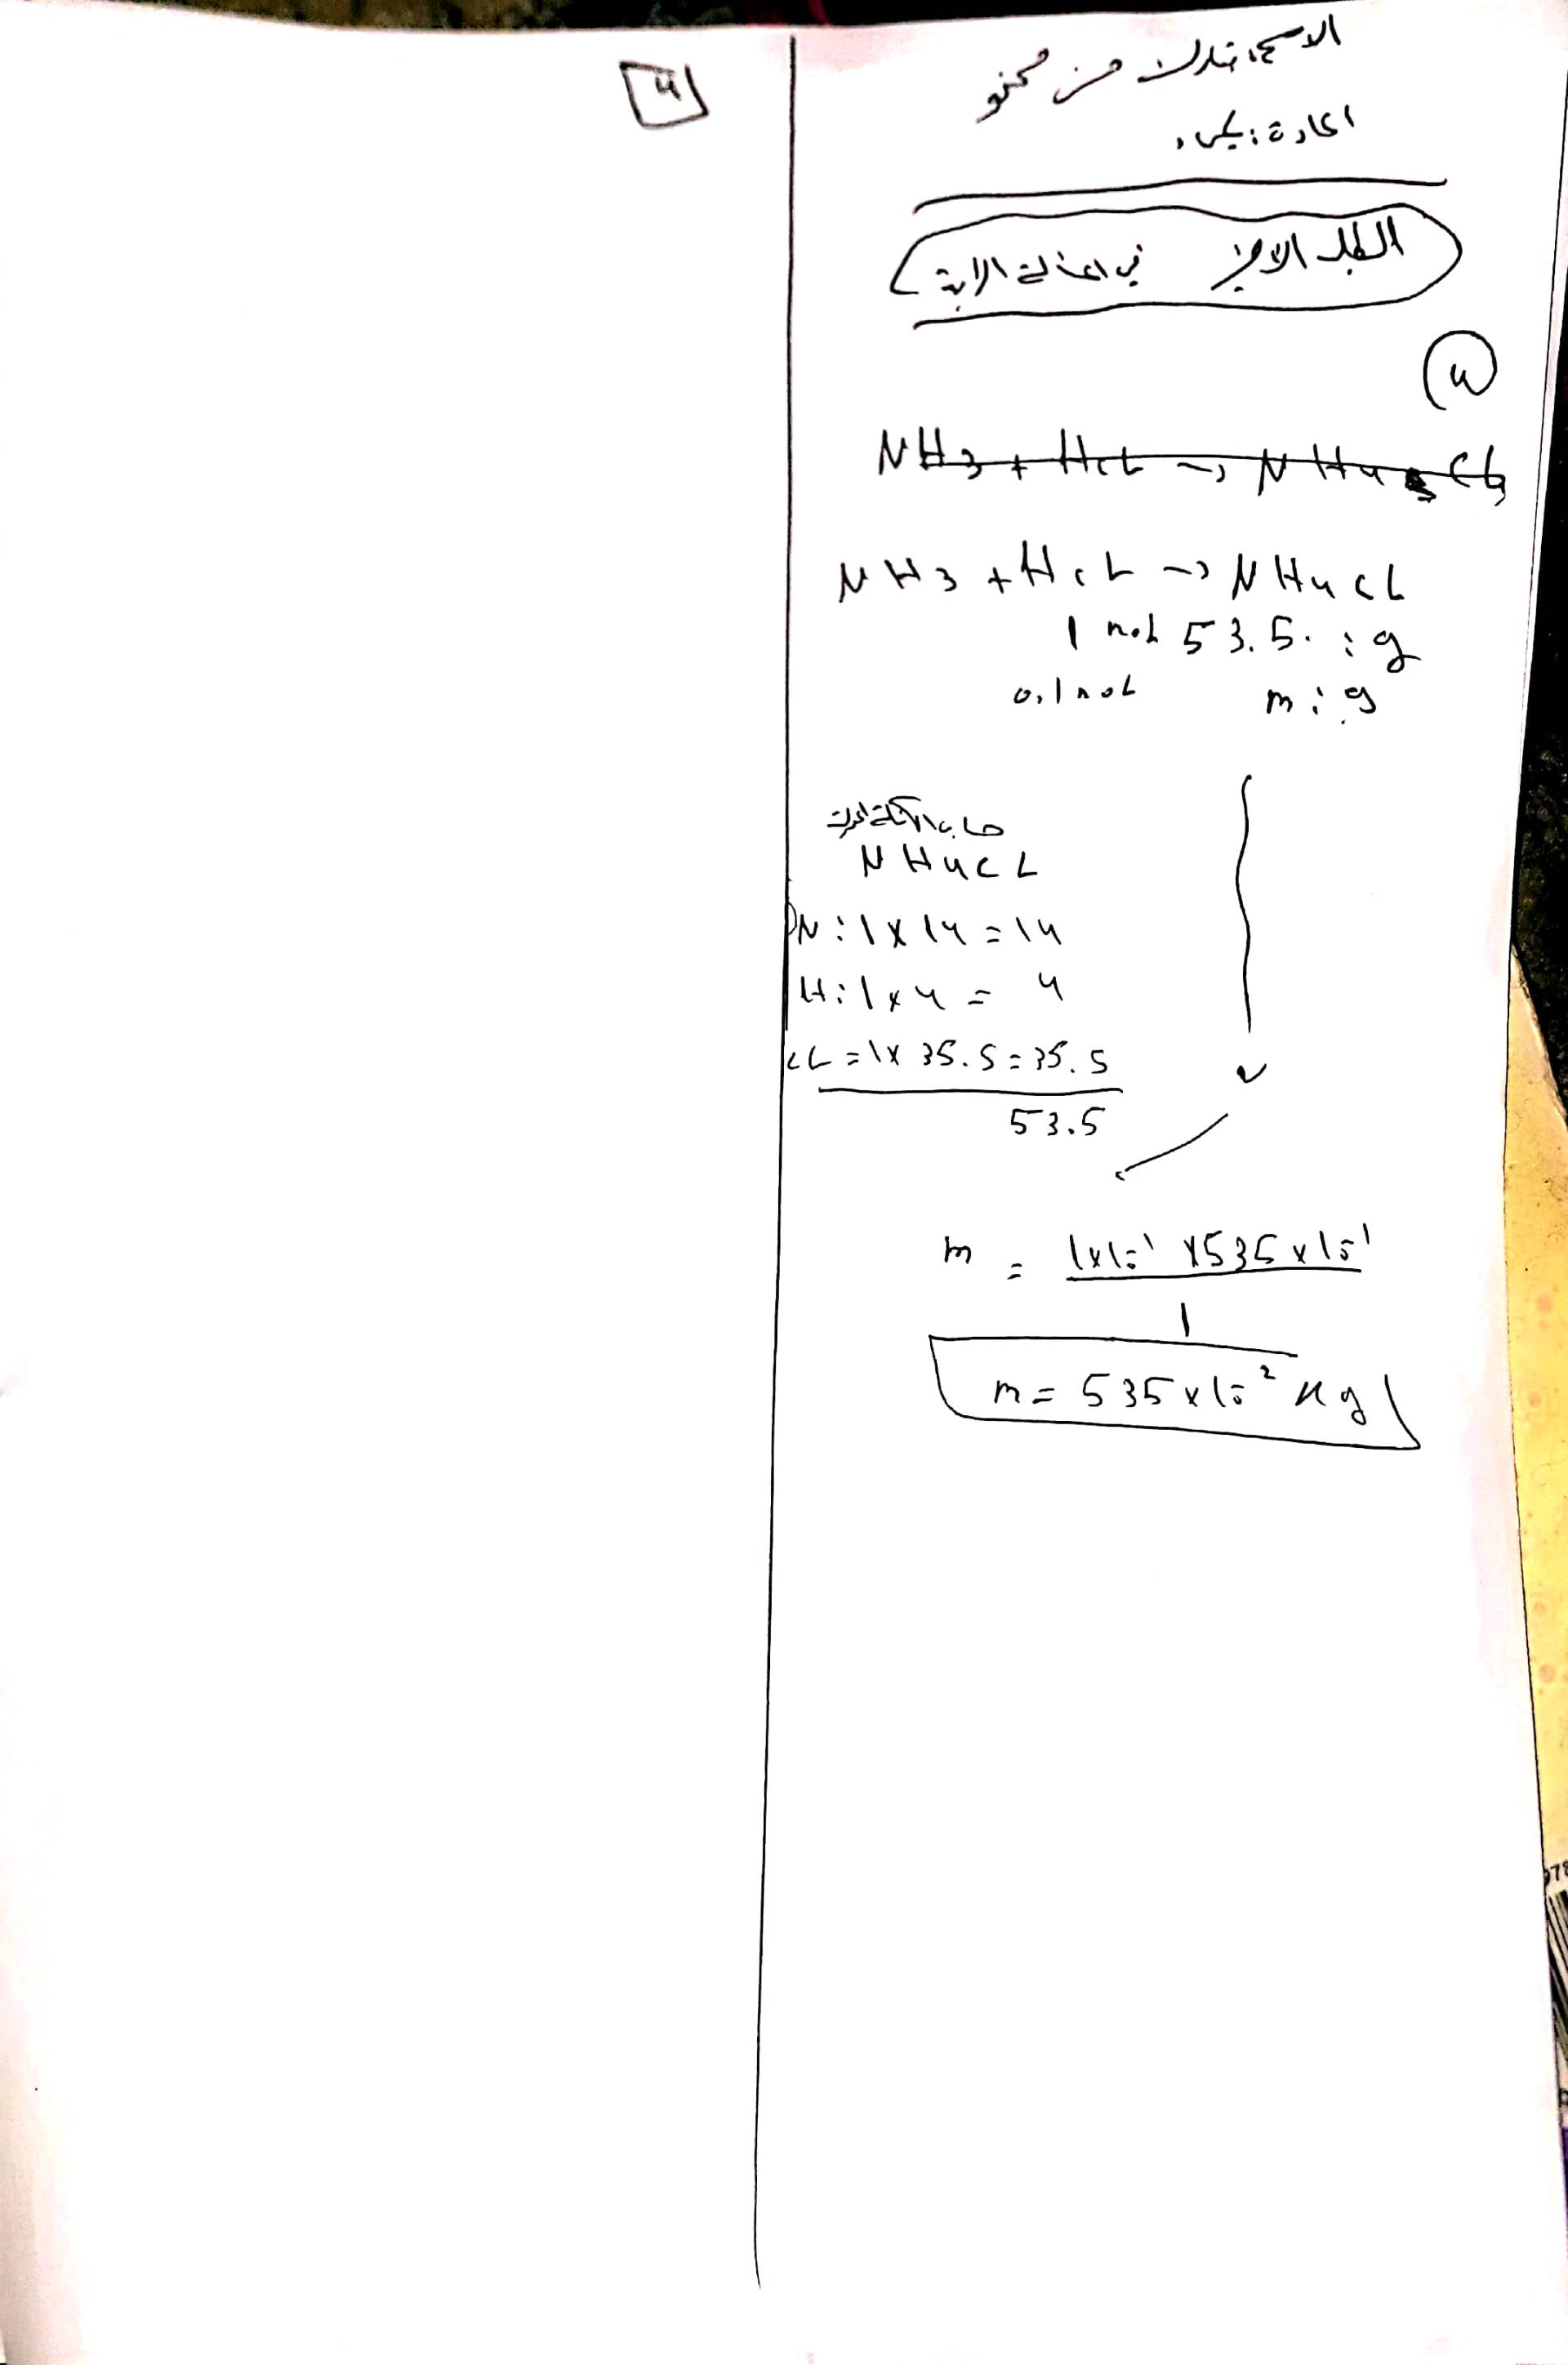 4
المادة: كيمياء
الطلب الاخير في المسألة الرابعة
4
NH3 + HCL → NH4 CL
NH3 + HCL → NH4CL
1 mol 53.5 : g
0.1 mol m : g
حساب الكتلة المولية
NH4CL
N : 1 x 14 = 14
H : 1 x 4 = 4
CL = 1 x 35.5 = 35.5
53.5
m = 1x10⁻¹ x 535 x 10⁻¹
1
m = 535 x 10⁻² Kg